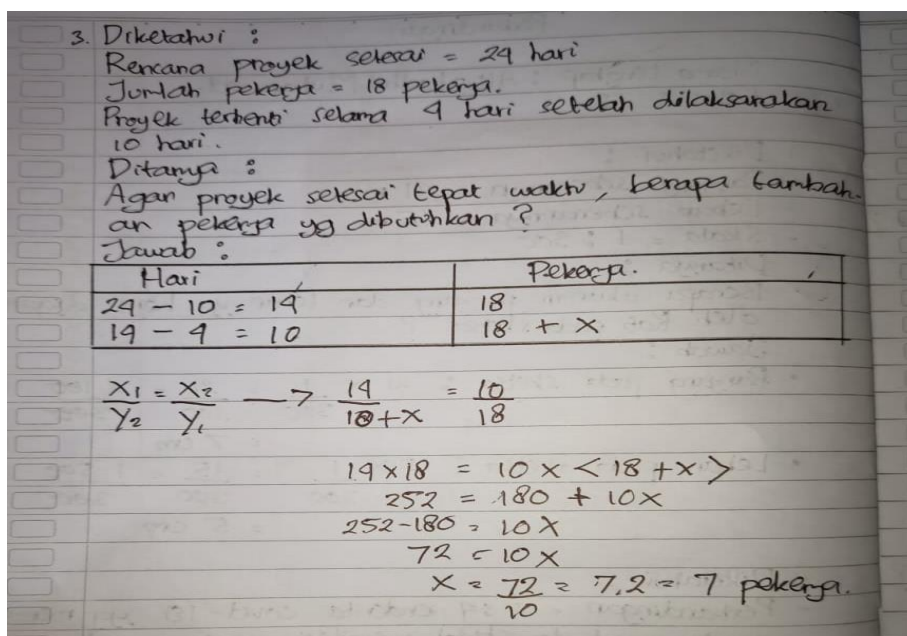 3. Diketahui :
Rencana proyek selesai = 24 hari
Jumlah pekerja = 18 pekerja.
Proyek terhenti selama 4 hari setelah dilaksanakan
10 hari.
Ditanya :
Agar proyek selesai tepat waktu, berapa tambah-
an pekerja yg dibutuhkan ?
Jawab :
Hari Pekerja.
24 - 10 = 14 18
14 - 4 = 10 18 + x
X1/Y2 = X2/Y1 → 14/18+x = 10/18
14 x 18 = 10 x < 18 + x >
252 = 180 + 10x
252-180 = 10x
72 = 10x
x = 72/10 = 7,2 = 7 pekerja.